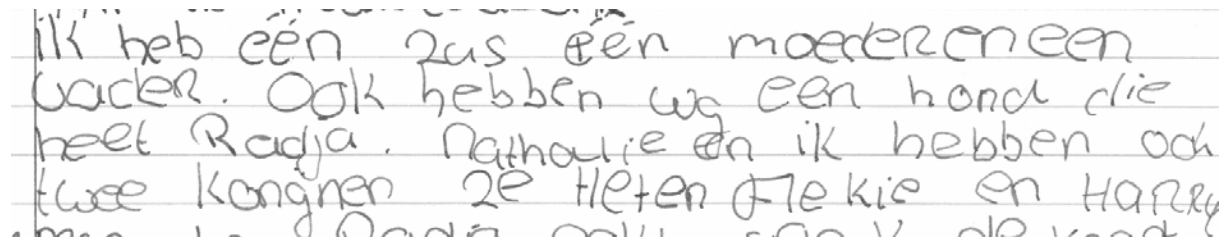 ik heb één zus één moeder en een
vader. Ook hebben wij een hond die
heet Radja. Nathalie en ik hebben ook
twee konijnen ze Heten Flekie en Harry
Radja